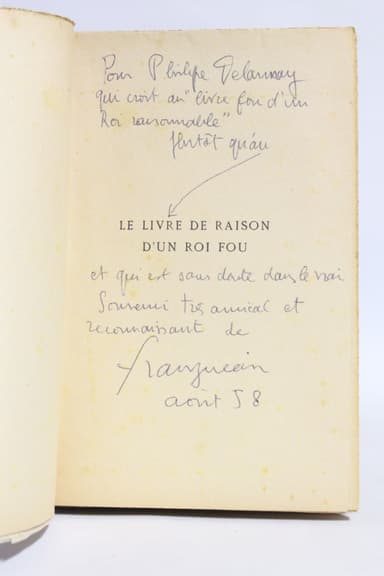 Pour Philippe Delaunay
qui croit au "livre fou d'un
Roi raisonnable"
plutôt qu'au
LE LIVRE DE RAISON
D'UN ROI FOU
et qui est sans doute dans le vrai
Souvenir très amical et
reconnaissant de
août 58